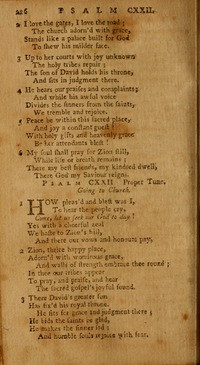 226 PSALM CXXII.
2 I love the gates, I love the road;
The church adorn'd with grace,
Stands like a palace built for God
To shew his milder face.
3 Up to her courts with joy unknown
The holy tribes repair;
The son of David holds his throne,
And sits in judgment there.
4 He hears our praises and complaints;
And while his awful voice
Divides the sinners from the saints,
We tremble and rejoice.
5 Peace be within this sacred place,
And joy a constant guest!
With holy gifts and heavenly grace
Be her attendants blest!
6 My soul shall pray for Zion still,
While life or breath remains;
There my best friends, my kindred dwell,
There God my Saviour reigns.
PSALM CXXII Proper Tune.
Going to Church.
1 HOW pleas'd and blest was I,
To hear the people cry,
Come, let us seek our God to day!
Yes with a cheerful zeal
We haste to Zion's hill,
And there our vows and honours pay.
2 Zion, thrice happy place,
Adorn'd with wondrous grace,
And walls of strength embrace thee round;
In thee our tribes appear
To pray, and praise, and hear
The sacred gospel's joyful sound.
3 There David's greater son
Has fix'd his royal throne,
He sits for grace and judgment there;
He bids the saints be glad,
He makes the sinner sad;
And humble souls rejoice with fear.